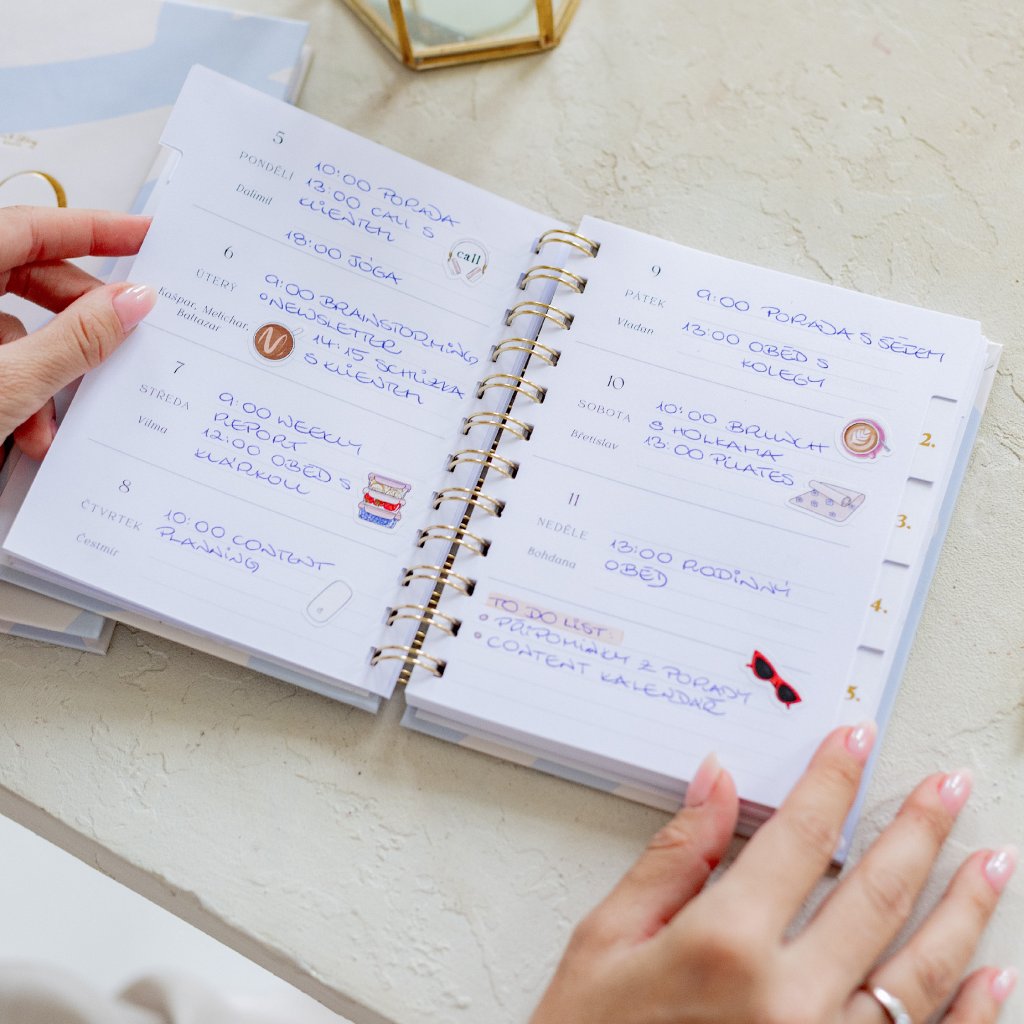 5
PONDĚLÍ
Dalimil
10:00 PORADA
13:00 CALL S
KLIENTEM
18:00 JÓGA
call
6
ÚTERÝ
Kašpar, Melichar,
Baltazar
9:00 BRAINSTORMING
NEWSLETTER
14:15 SCHŮZKA
S KLIENTEM
7
STŘEDA
Vilma
9:00 WEEKLY
REPORT
12:00 OBĚD S
KLÁRKOU
8
ČTVRTEK
Čestmír
10:00 CONTENT
PLANNING
9
PÁTEK
Vladan
9:00 PORADA S ŠÉFEM
13:00 OBĚD S
KOLEGY
10
SOBOTA
Břetislav
10:00 BRUNCH
S HOLKAMA
13:00 PILATES
11
NEDĚLE
Bohdana
13:00 RODINNÝ
OBĚD
TO DO LIST:
PŘIPOMÍNKY Z PORADY
CONTENT KALENDÁŘ
2.
3.
4.
5.